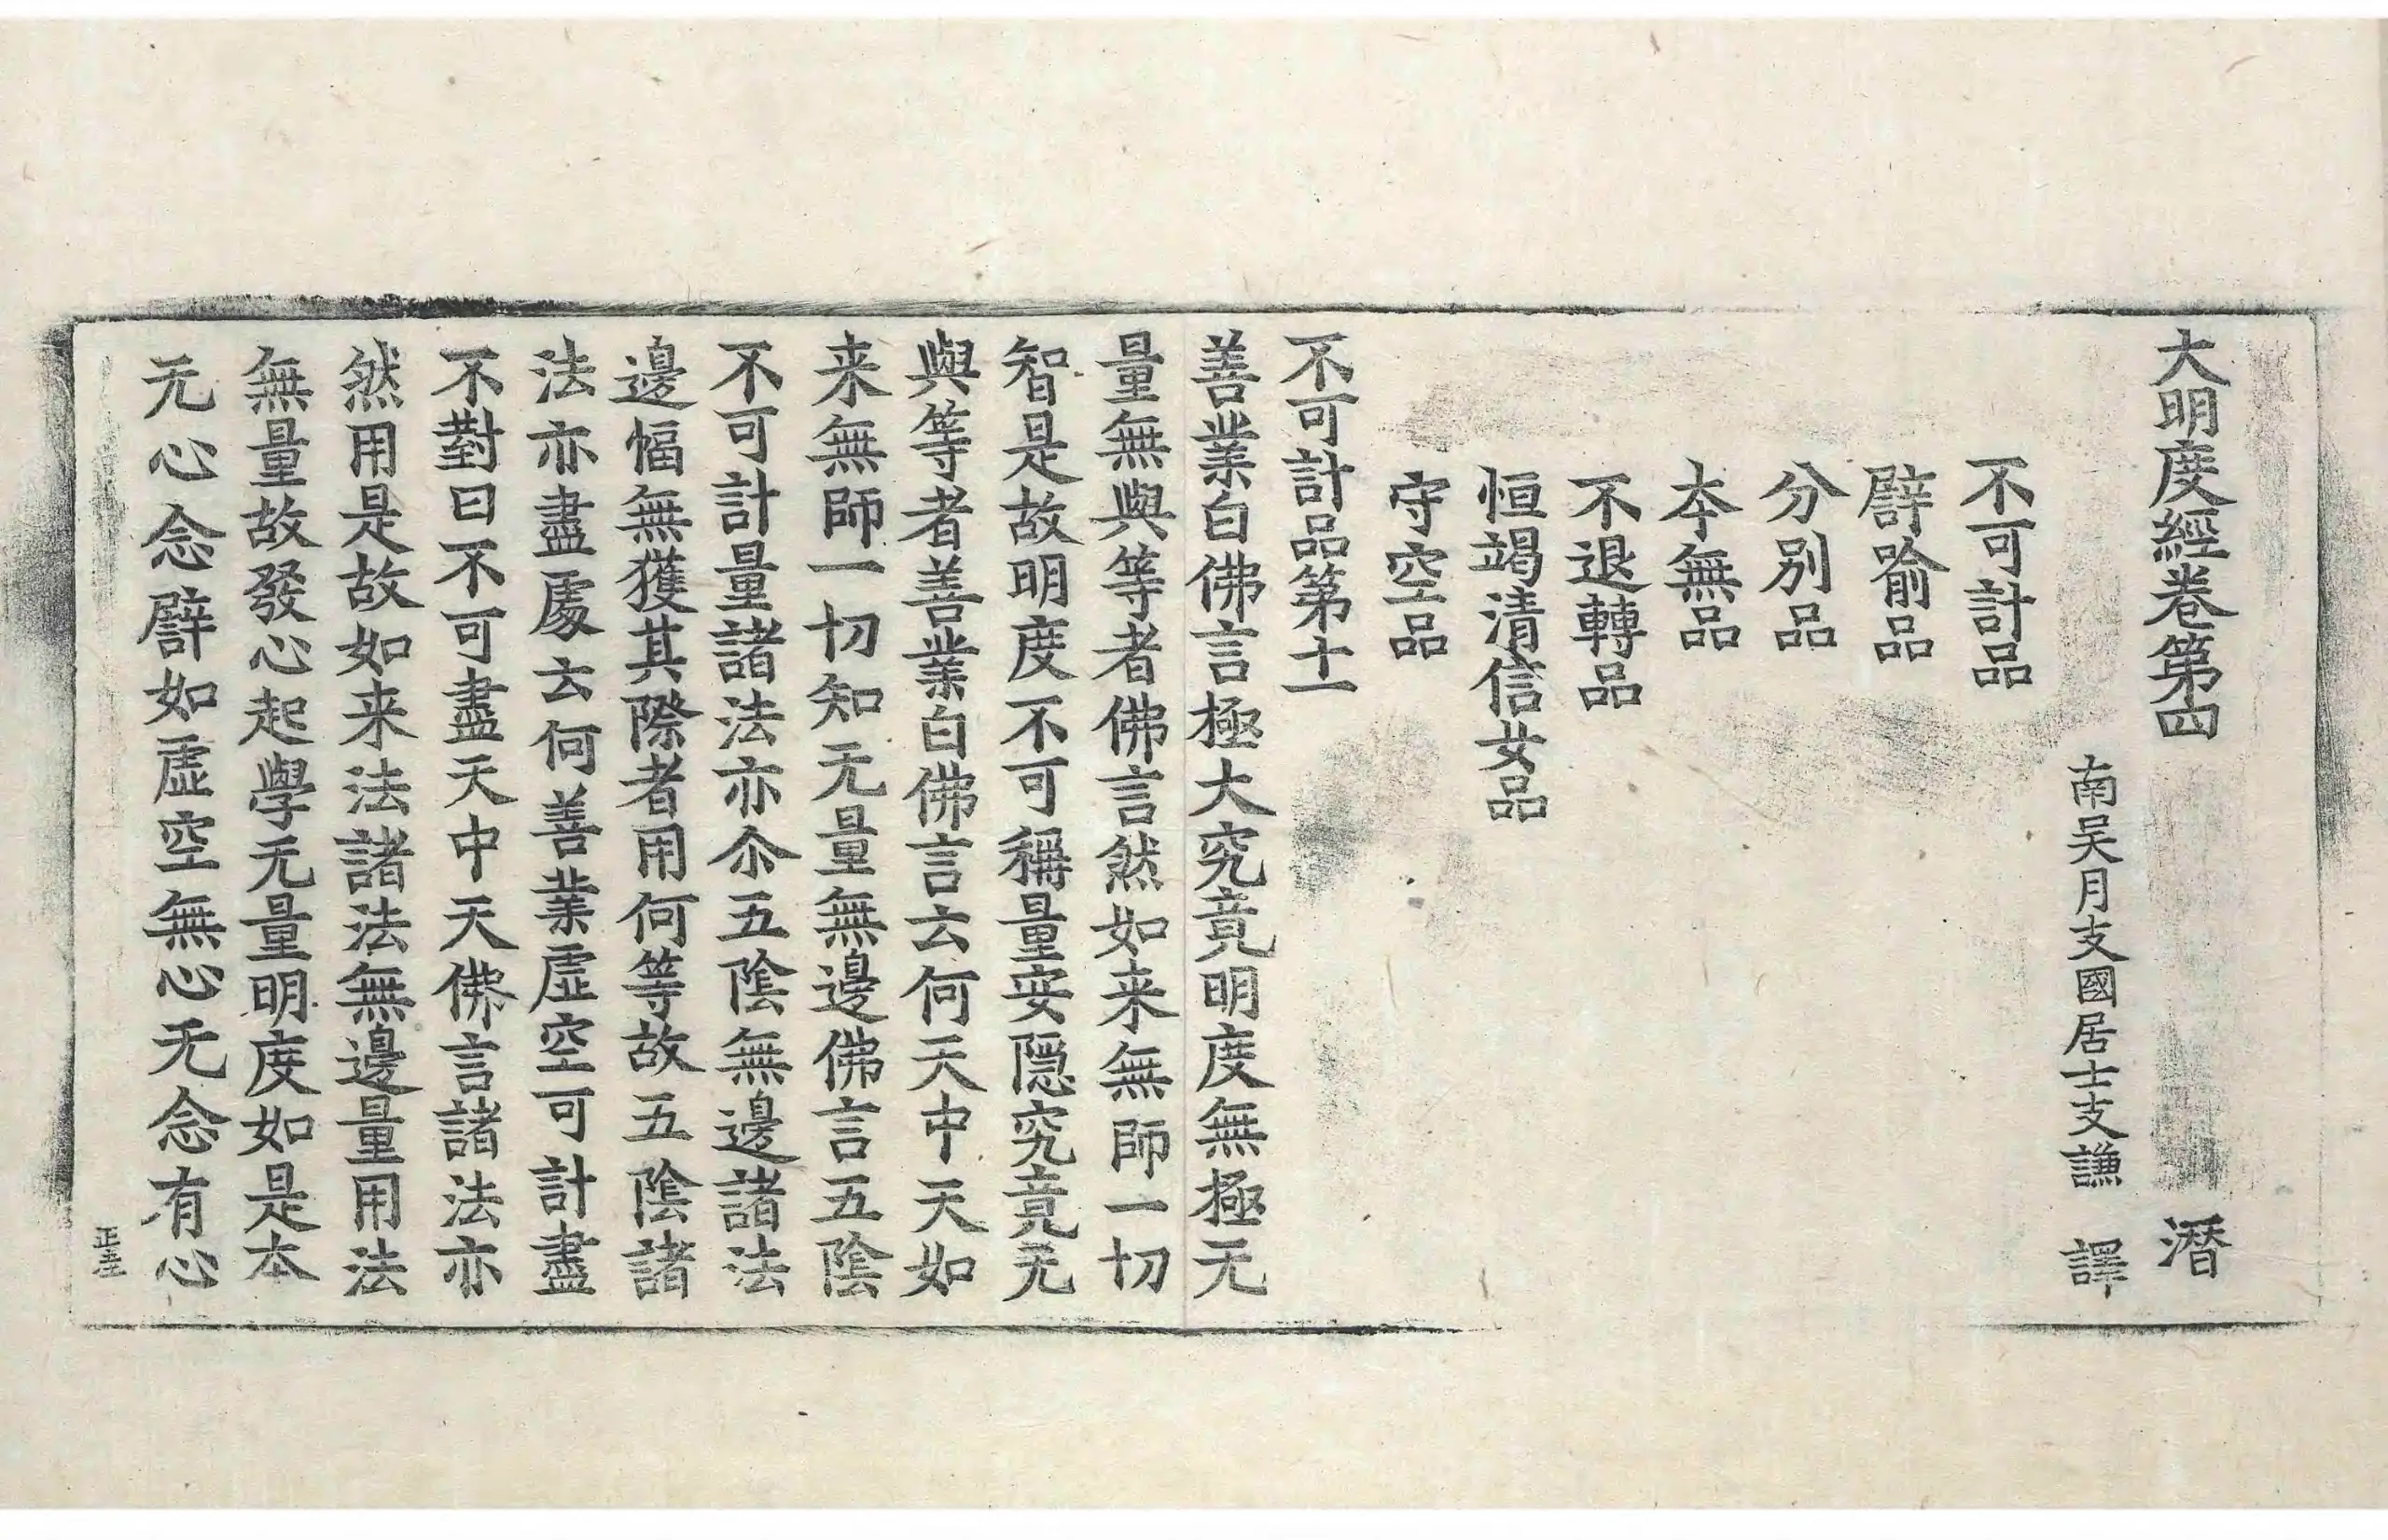 大明度經卷第四 潛
南吴月支國居士支謙 譯
不可計品
譬喻品
分別品
本無品
不退轉品
恒竭清信女品
守空品
不可計品第十一
善業白佛言極大究竟明度無極无
量無與等者佛言然如来無師一切
智是故明度不可稱量安隱究竟无
與等者善業白佛言云何天中天如
来無師一切知无量無邊佛言五陰
不可計量諸法亦尒五陰無邊諸法
邊幅無獲其際者用何等故五陰諸
法亦盡處云何善業虛空可計盡
不對曰不可盡天中天佛言諸法亦
然用是故如来法諸法無邊量用法
無量故發心起學无量明度如是本
无心念譬如虛空無心无念有心